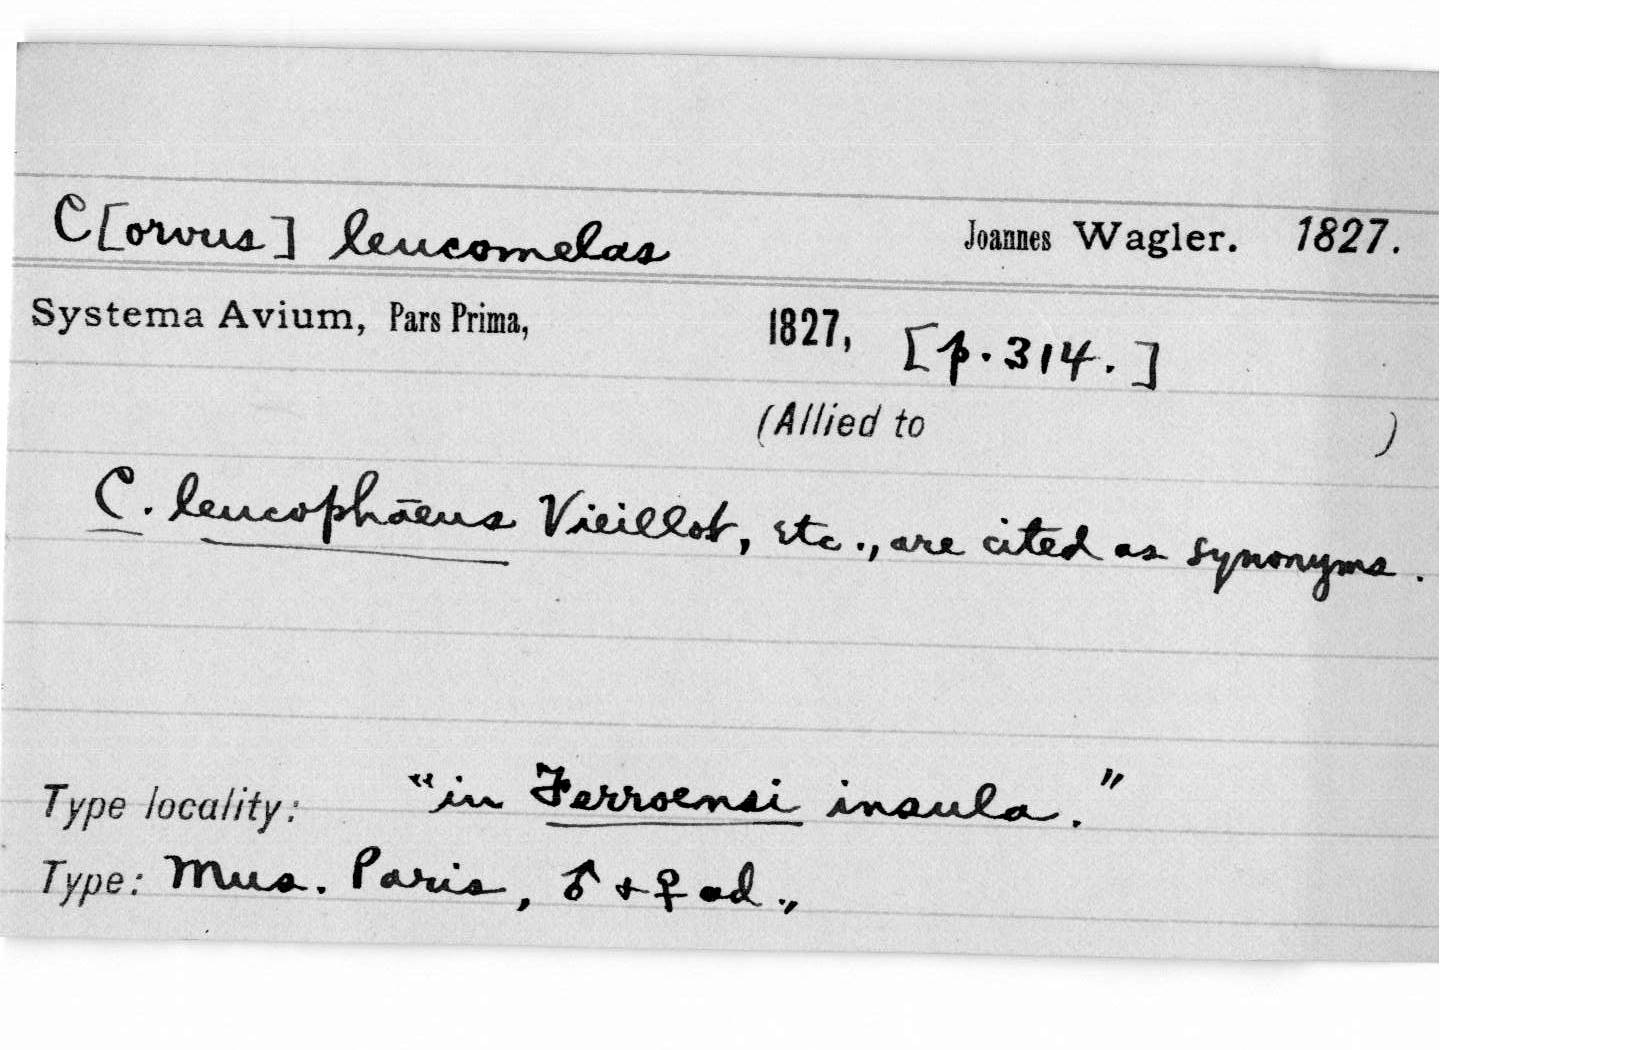 C[orvus] leucomelas Joannes Wagler. 1827.
Systema Avium, Pars Prima, 1827, [p. 314.]
(Allied to )
C. leucophäeus Vieillot, etc., are cited as synonyms.
Type locality: "in Ferroensi insula."
Type: Mus. Paris, ♂ + ♀ ad.,